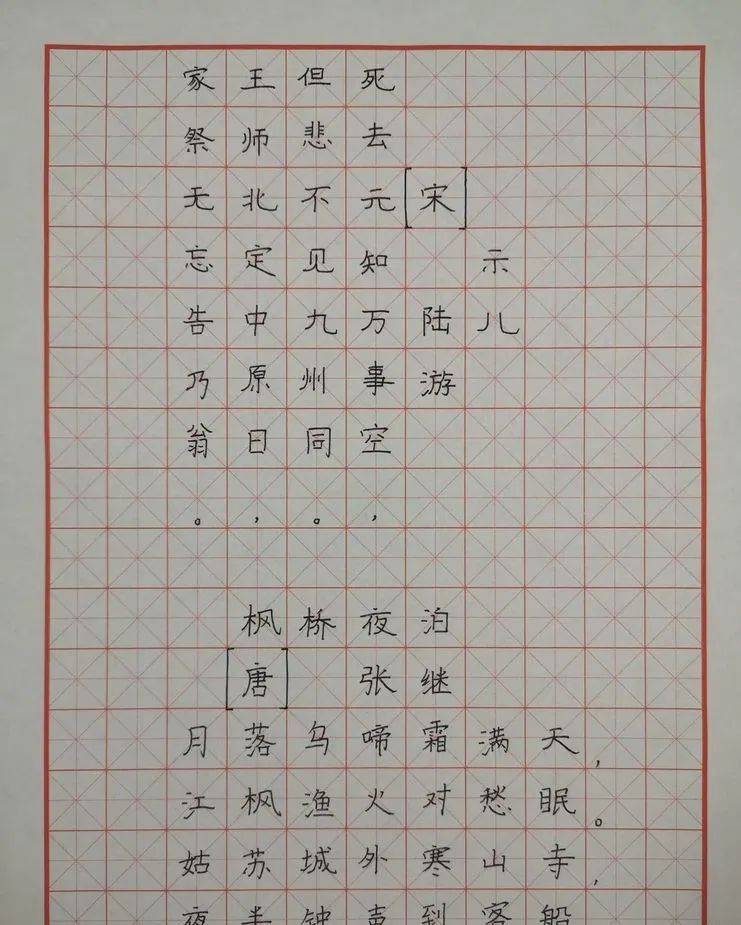 示儿
[宋] 陆游
死去元知万事空，
但悲不见九州同。
王师北定中原日，
家祭无忘告乃翁。
枫桥夜泊
[唐] 张继
月落乌啼霜满天，
江枫渔火对愁眠。
姑苏城外寒山寺，
夜半钟声到客船